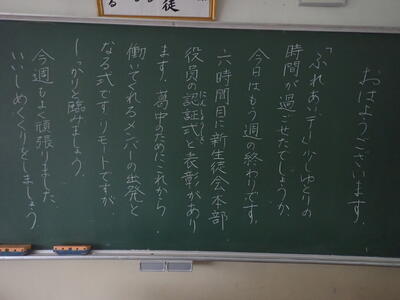 徒
おはようございます。
「ふれあいデー」少しゆとりの
時間が過ごせたでしょうか。
今日はもう週の終わりです。
六時間目に新生徒会本部
役員の認証式と表彰があり
ます。葛中のためにこれから
働いてくれるメンバーの出発と
なる式です。リモートですが、
しっかりと臨みましょう。
今週もよく頑張りました。
いいしめくくりをしましょう。